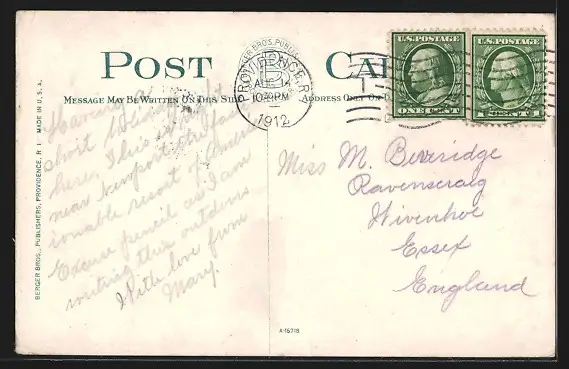 POST CA
MESSAGE MAY BE WRITTEN ON THIS SIDE ADDRESS ONLY ON
U.S. POSTAGE
ONE CENT
U.S. POSTAGE
1 CENT 1
PROVIDENCE, R.I.
AUG 14
10 PM
1912
BERGER BROS., PUBLISHERS, PROVIDENCE, R. I. MADE IN U. S. A.
Having a
short
here. This is
near Newport the fash
ionable resort of America
Excuse pencil as I am
writing this outdoors
With love from
Mary.
Miss M. Beveridge
Ravenscraig
Wivenhoe
Essex
England
A-15718